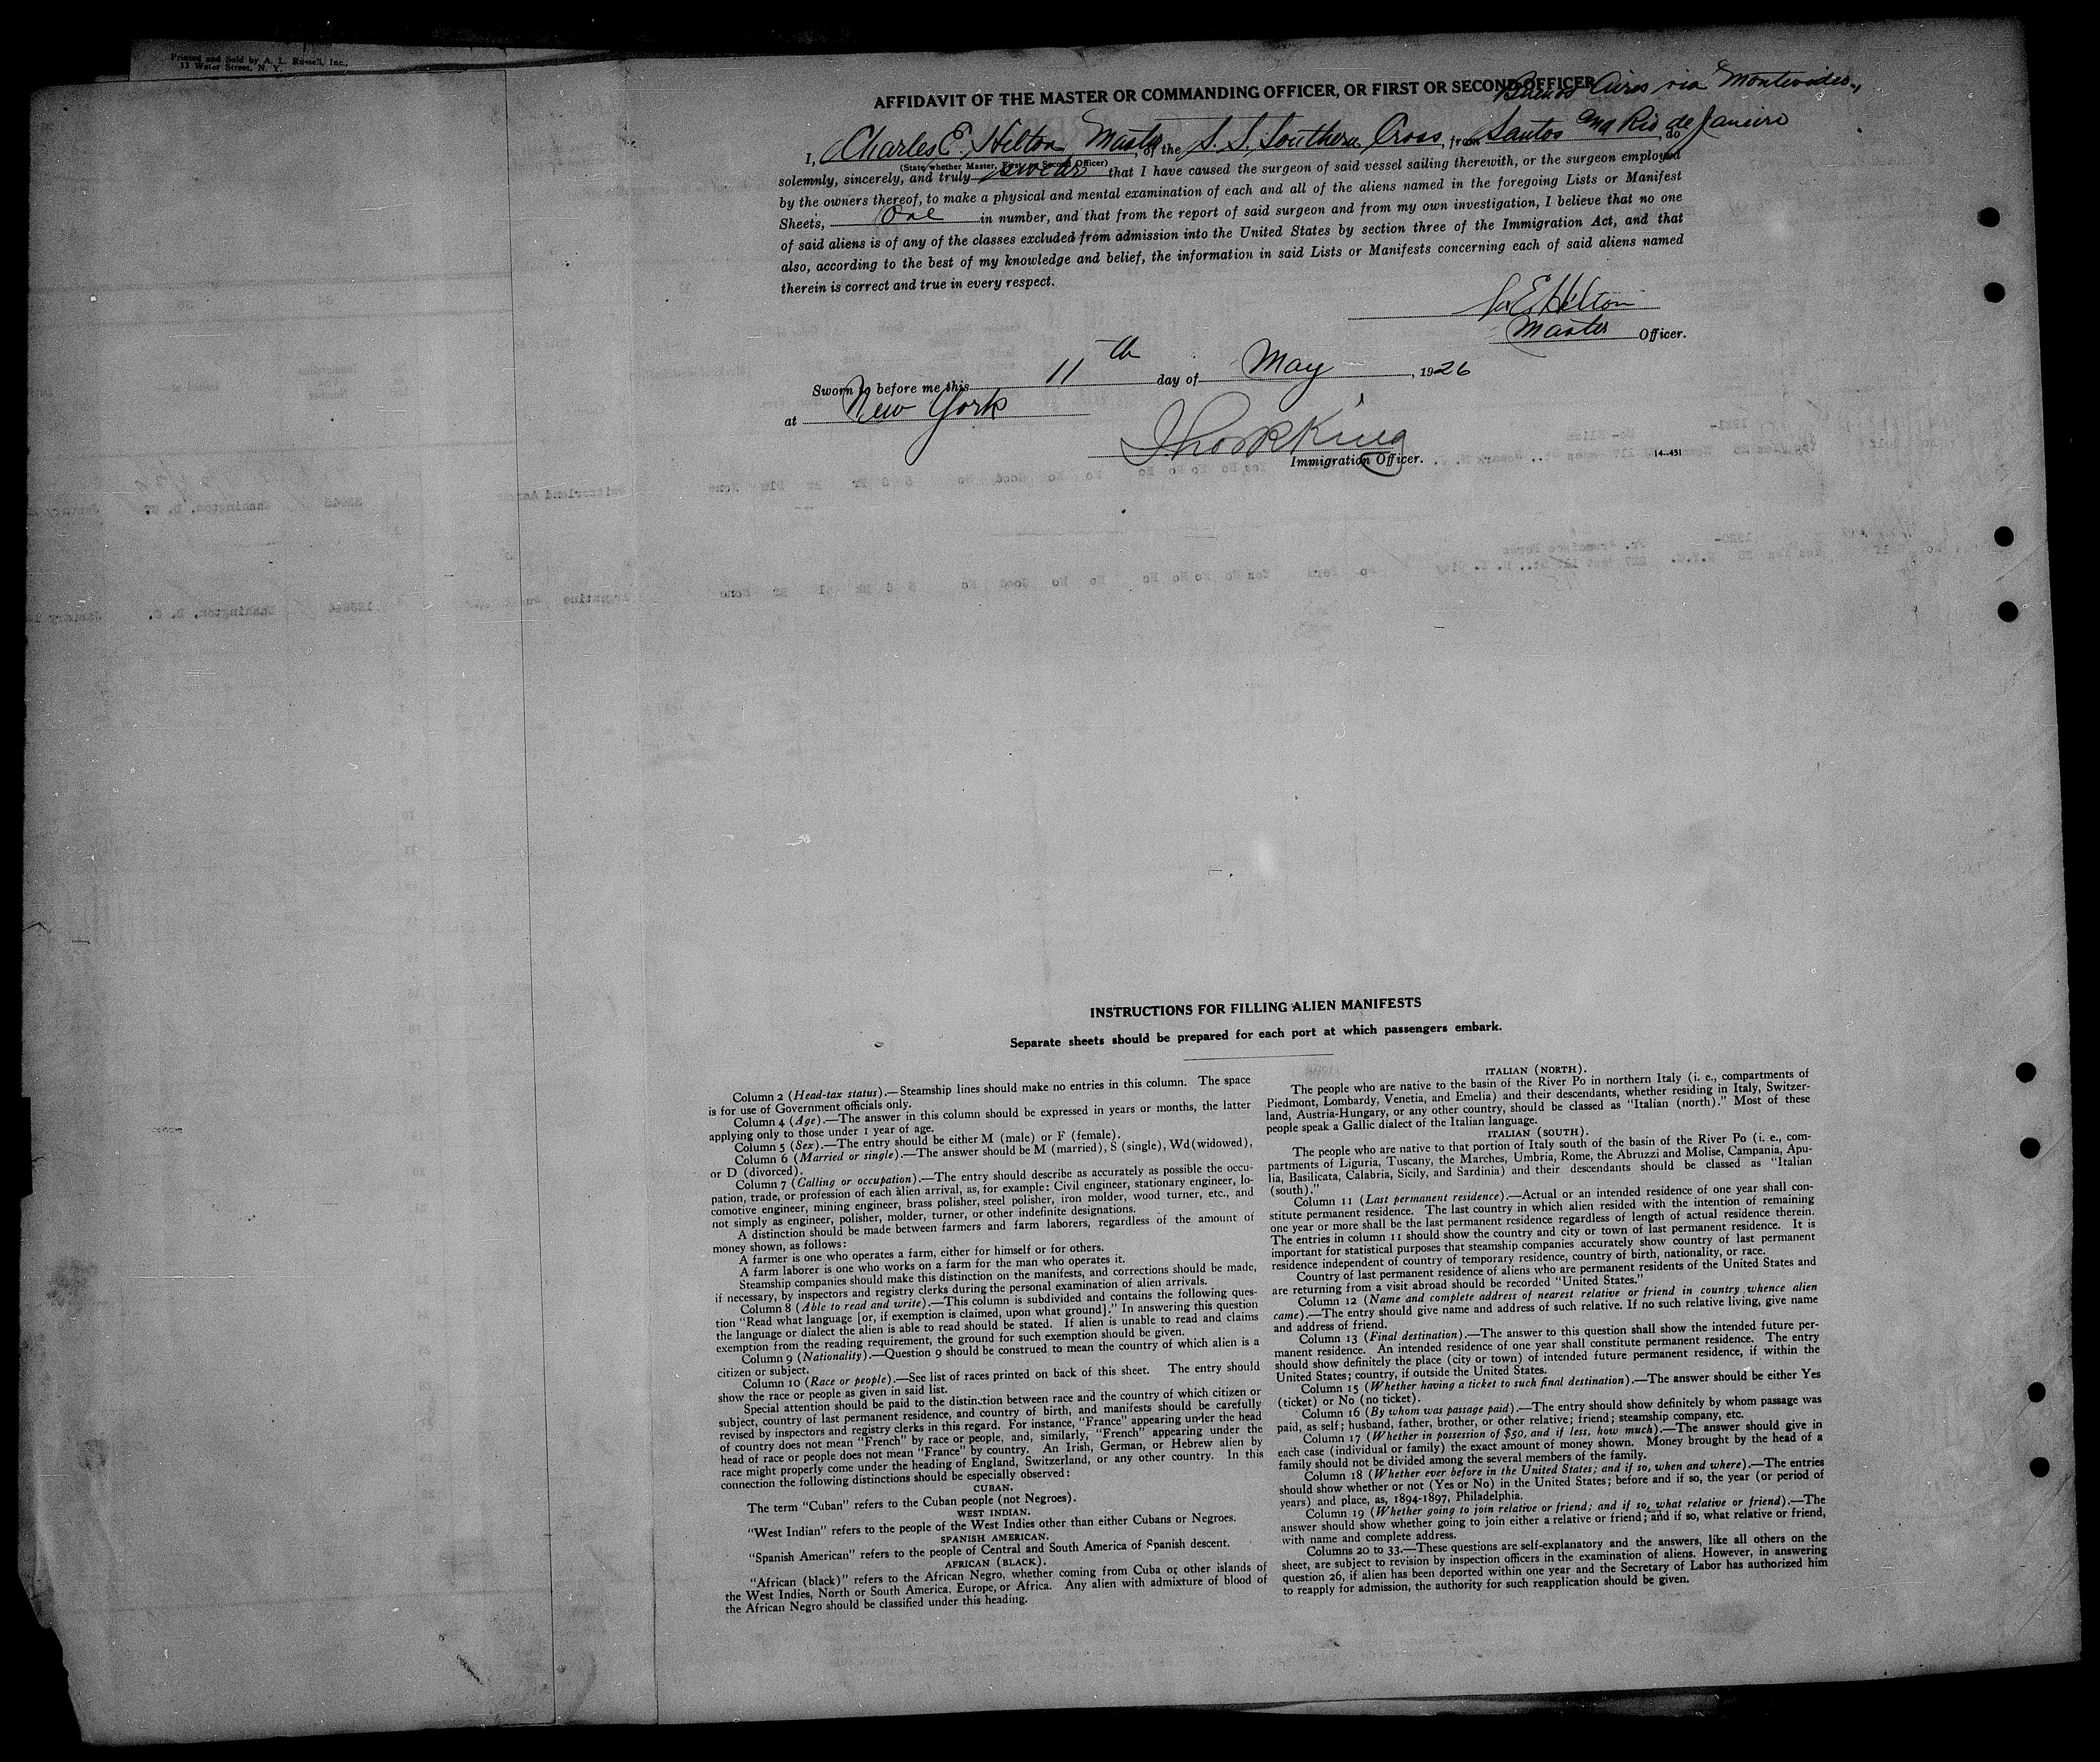 Printed and Sold by A. L. Russell, Inc.,
13 Water Street, N. Y.
AFFIDAVIT OF THE MASTER OR COMMANDING OFFICER, OR FIRST OR SECOND OFFICER
Buenos Aires via Montevideo,
I, Charles E. Hilton Master, of the S. S. Southern Cross, from Santos and Rio de Janeiro, do
(State whether Master, First or Second Officer)
solemnly, sincerely, and truly swear that I have caused the surgeon of said vessel sailing therewith, or the surgeon employed
by the owners thereof, to make a physical and mental examination of each and all of the aliens named in the foregoing Lists or Manifest
Sheets, One in number, and that from the report of said surgeon and from my own investigation, I believe that no one
of said aliens is of any of the classes excluded from admission into the United States by section three of the Immigration Act, and that
also, according to the best of my knowledge and belief, the information in said Lists or Manifests concerning each of said aliens named
therein is correct and true in every respect.
Hilton
Master Officer.
Sworn to before me this 11th day of May, 1926
at New York
King
Immigration Officer.
14-451
INSTRUCTIONS FOR FILLING ALIEN MANIFESTS
Separate sheets should be prepared for each port at which passengers embark.
Column 2 (Head-tax status).—Steamship lines should make no entries in this column. The space
is for use of Government officials only.
Column 4 (Age).—The answer in this column should be expressed in years or months, the latter
applying only to those under 1 year of age.
Column 5 (Sex).—The entry should be either M (male) or F (female).
Column 6 (Married or single).—The answer should be M (married), S (single), Wd (widowed),
or D (divorced).
Column 7 (Calling or occupation).—The entry should describe as accurately as possible the occu-
pation, trade, or profession of each alien arrival, as, for example: Civil engineer, stationary engineer, lo-
comotive engineer, mining engineer, brass polisher, steel polisher, iron molder, wood turner, etc., and
not simply as engineer, polisher, molder, turner, or other indefinite designations.
A distinction should be made between farmers and farm laborers, regardless of the amount of
money shown, as follows:
A farmer is one who operates a farm, either for himself or for others.
A farm laborer is one who works on a farm for the man who operates it.
Steamship companies should make this distinction on the manifests, and corrections should be made,
if necessary, by inspectors and registry clerks during the personal examination of alien arrivals.
Column 8 (Able to read and write).—This column is subdivided and contains the following ques-
tion "Read what language [or, if exemption is claimed, upon what ground]." In answering this question
the language or dialect the alien is able to read should be stated. If alien is unable to read and claims
exemption from the reading requirement, the ground for such exemption should be given.
Column 9 (Nationality).—Question 9 should be construed to mean the country of which alien is a
citizen or subject.
Column 10 (Race or people).—See list of races printed on back of this sheet. The entry should
show the race or people as given in said list.
Special attention should be paid to the distinction between race and the country of which citizen or
subject, country of last permanent residence, and country of birth, and manifests should be carefully
revised by inspectors and registry clerks in this regard. For instance, "France" appearing under the head
of country does not mean "French" by race or people, and, similarly, "French" appearing under the
head of race or people does not mean "France" by country. An Irish, German, or Hebrew alien by
race might properly come under the heading of England, Switzerland, or any other country. In this
connection the following distinctions should be especially observed:
CUBAN.
The term "Cuban" refers to the Cuban people (not Negroes).
WEST INDIAN.
"West Indian" refers to the people of the West Indies other than either Cubans or Negroes.
SPANISH AMERICAN.
"Spanish American" refers to the people of Central and South America of Spanish descent.
AFRICAN (BLACK).
"African (black)" refers to the African Negro, whether coming from Cuba or other islands of
the West Indies, North or South America, Europe, or Africa. Any alien with admixture of blood of
the African Negro should be classified under this heading.
ITALIAN (NORTH).
The people who are native to the basin of the River Po in northern Italy (i. e., compartments of
Piedmont, Lombardy, Venetia, and Emelia) and their descendants, whether residing in Italy, Switzer-
land, Austria-Hungary, or any other country, should be classed as "Italian (north)." Most of these
people speak a Gallic dialect of the Italian language.
ITALIAN (SOUTH).
The people who are native to that portion of Italy south of the basin of the River Po (i. e., com-
partments of Liguria, Tuscany, the Marches, Umbria, Rome, the Abruzzi and Molise, Campania, Apu-
lia, Basilicata, Calabria, Sicily, and Sardinia) and their descendants should be classed as "Italian
(south)."
Column 11 (Last permanent residence).—Actual or an intended residence of one year shall con-
stitute permanent residence. The last country in which alien resided with the intention of remaining
one year or more shall be the last permanent residence regardless of length of actual residence therein.
The entries in column 11 should show the country and city or town of last permanent residence. It is
important for statistical purposes that steamship companies accurately show country of last permanent
residence independent of country of temporary residence, country of birth, nationality, or race.
Country of last permanent residence of aliens who are permanent residents of the United States and
are returning from a visit abroad should be recorded "United States."
Column 12 (Name and complete address of nearest relative or friend in country whence alien
came).—The entry should give name and address of such relative. If no such relative living, give name
and address of friend.
Column 13 (Final destination).—The answer to this question shall show the intended future per-
manent residence. An intended residence of one year shall constitute permanent residence. The entry
should show definitely the place (city or town) of intended future permanent residence, if within the
United States; country, if outside the United States.
Column 15 (Whether having a ticket to such final destination).—The answer should be either Yes
(ticket) or No (no ticket).
Column 16 (By whom was passage paid).—The entry should show definitely by whom passage was
paid, as self; husband, father, brother, or other relative; friend; steamship company, etc.
Column 17 (Whether in possession of $50, and if less, how much).—The answer should give in
each case (individual or family) the exact amount of money shown. Money brought by the head of a
family should not be divided among the several members of the family.
Column 18 (Whether ever before in the United States; and if so, when and where).—The entries
should show whether or not (Yes or No) in the United States; before and if so, the year (or period of
years) and place, as, 1894-1897, Philadelphia.
Column 19 (Whether going to join relative or friend; and if so, what relative or friend).—The
answer should show whether going to join either a relative or friend; and if so, what relative or friend,
with name and complete address.
Columns 20 to 33.—These questions are self-explanatory and the answers, like all others on the
sheet, are subject to revision by inspection officers in the examination of aliens. However, in answering
question 26, if alien has been deported within one year and the Secretary of Labor has authorized him
to reapply for admission, the authority for such reapplication should be given.